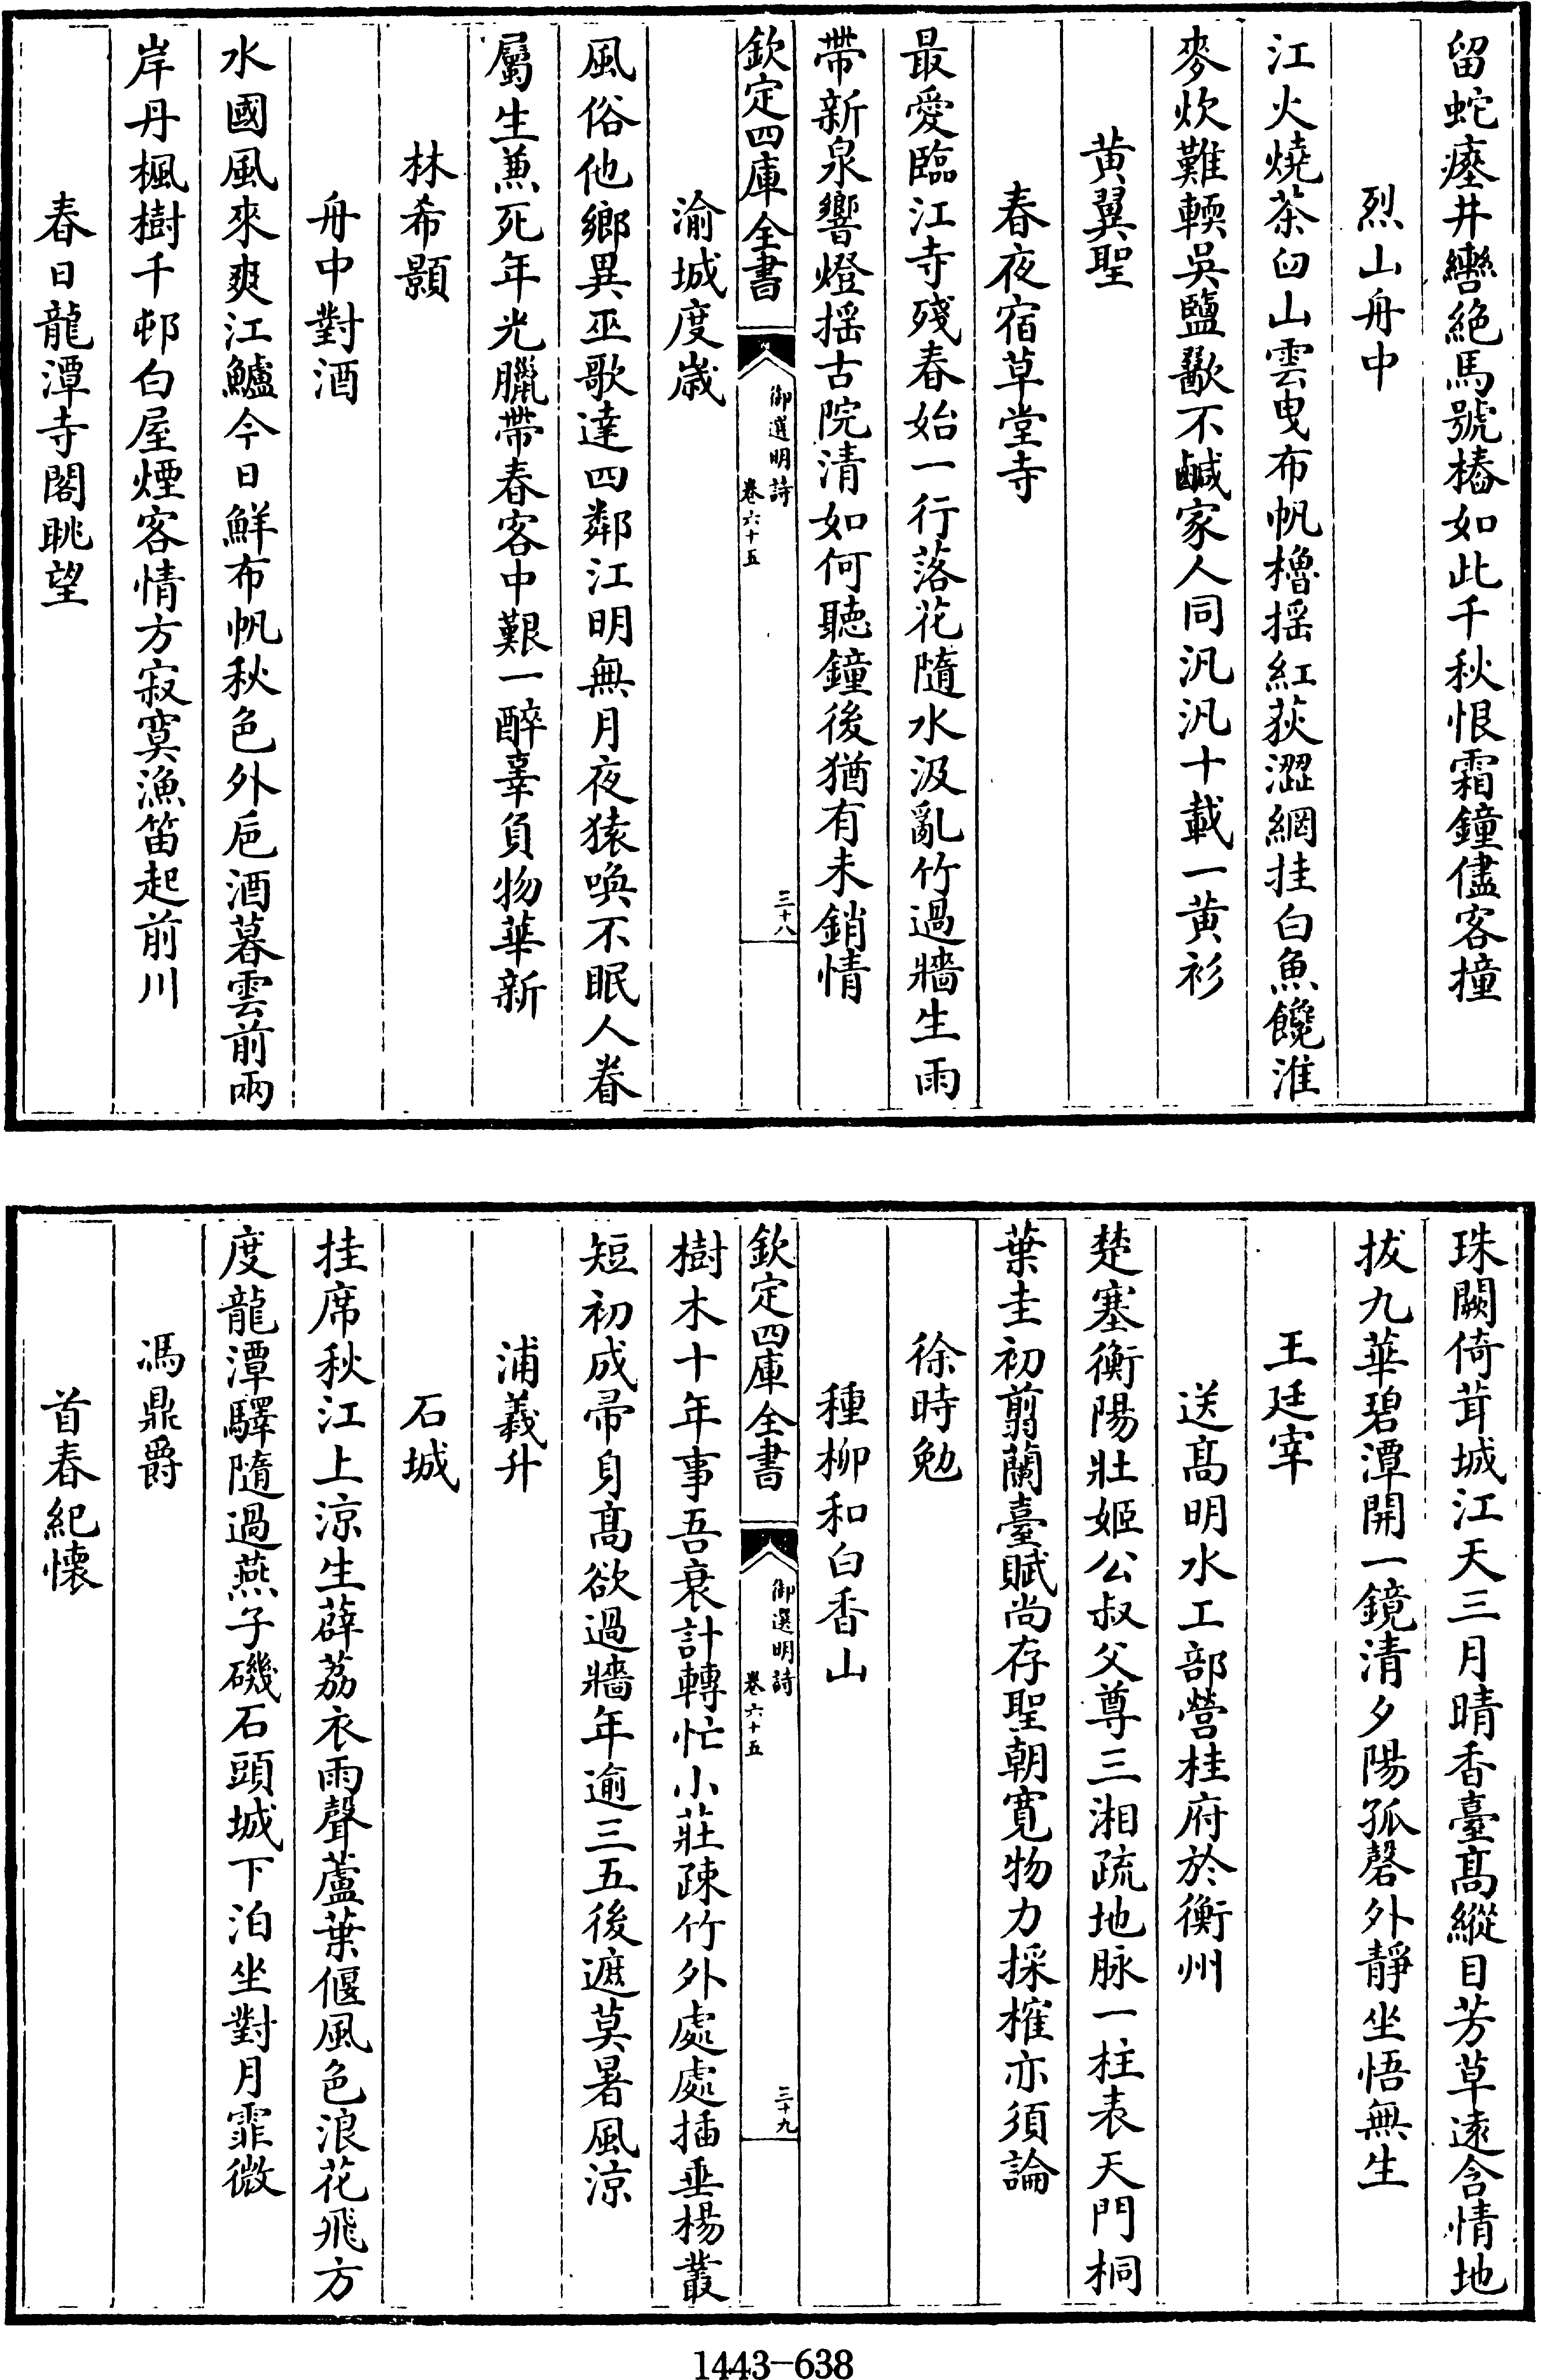 留蛇瘞井轡絶馬號樁如此千秋恨霜鐘儘客撞
烈山舟中
江火燒茶臼山雲曳布帆櫓揺紅荻澀網挂白魚饞淮
麥炊難輭吳鹽歠不鹹家人同汎汎十載一黄衫
黄翼聖
春夜宿草堂寺
最愛臨江寺殘春始一行落花隨水汲亂竹過牆生雨
帶新泉響燈揺古院清如何聽鐘後猶有未銷情
欽定四庫全書
御選明詩
卷六十五
三十八
渝城度歲
風俗他鄉異巫歌達四鄰江明無月夜猿喚不眠人眷
屬生兼死年光臘帶春客中艱一醉辜負物華新
林希顥
舟中對酒
水國風來爽江鱸今日鮮布帆秋色外巵酒暮雲前兩
岸丹楓樹千邨白屋煙客情方寂寞漁笛起前川
春日龍潭寺閣眺望
珠闕倚茸城江天三月晴香臺髙縱目芳草遠含情地
拔九華碧潭開一鏡清夕陽孤磬外靜坐悟無生
王廷宰
送髙明水工部營桂府於衡州
楚塞衡陽壯姬公叔父尊三湘疏地脉一柱表天門桐
葉圭初翦蘭臺賦尚存聖朝寛物力採榷亦須論
徐時勉
種柳和白香山
欽定四庫全書
御選明詩
卷六十五
三十九
樹木十年事吾衰計轉忙小莊疎竹外處處插垂楊叢
短初成帚身髙欲過牆年逾三五後遮莫暑風涼
浦羲升
石城
挂席秋江上涼生薜荔衣雨聲蘆葉偃風色浪花飛方
度龍潭驛隨過燕子磯石頭城下泊坐對月霏微
馮鼎爵
首春紀懷
1443-638